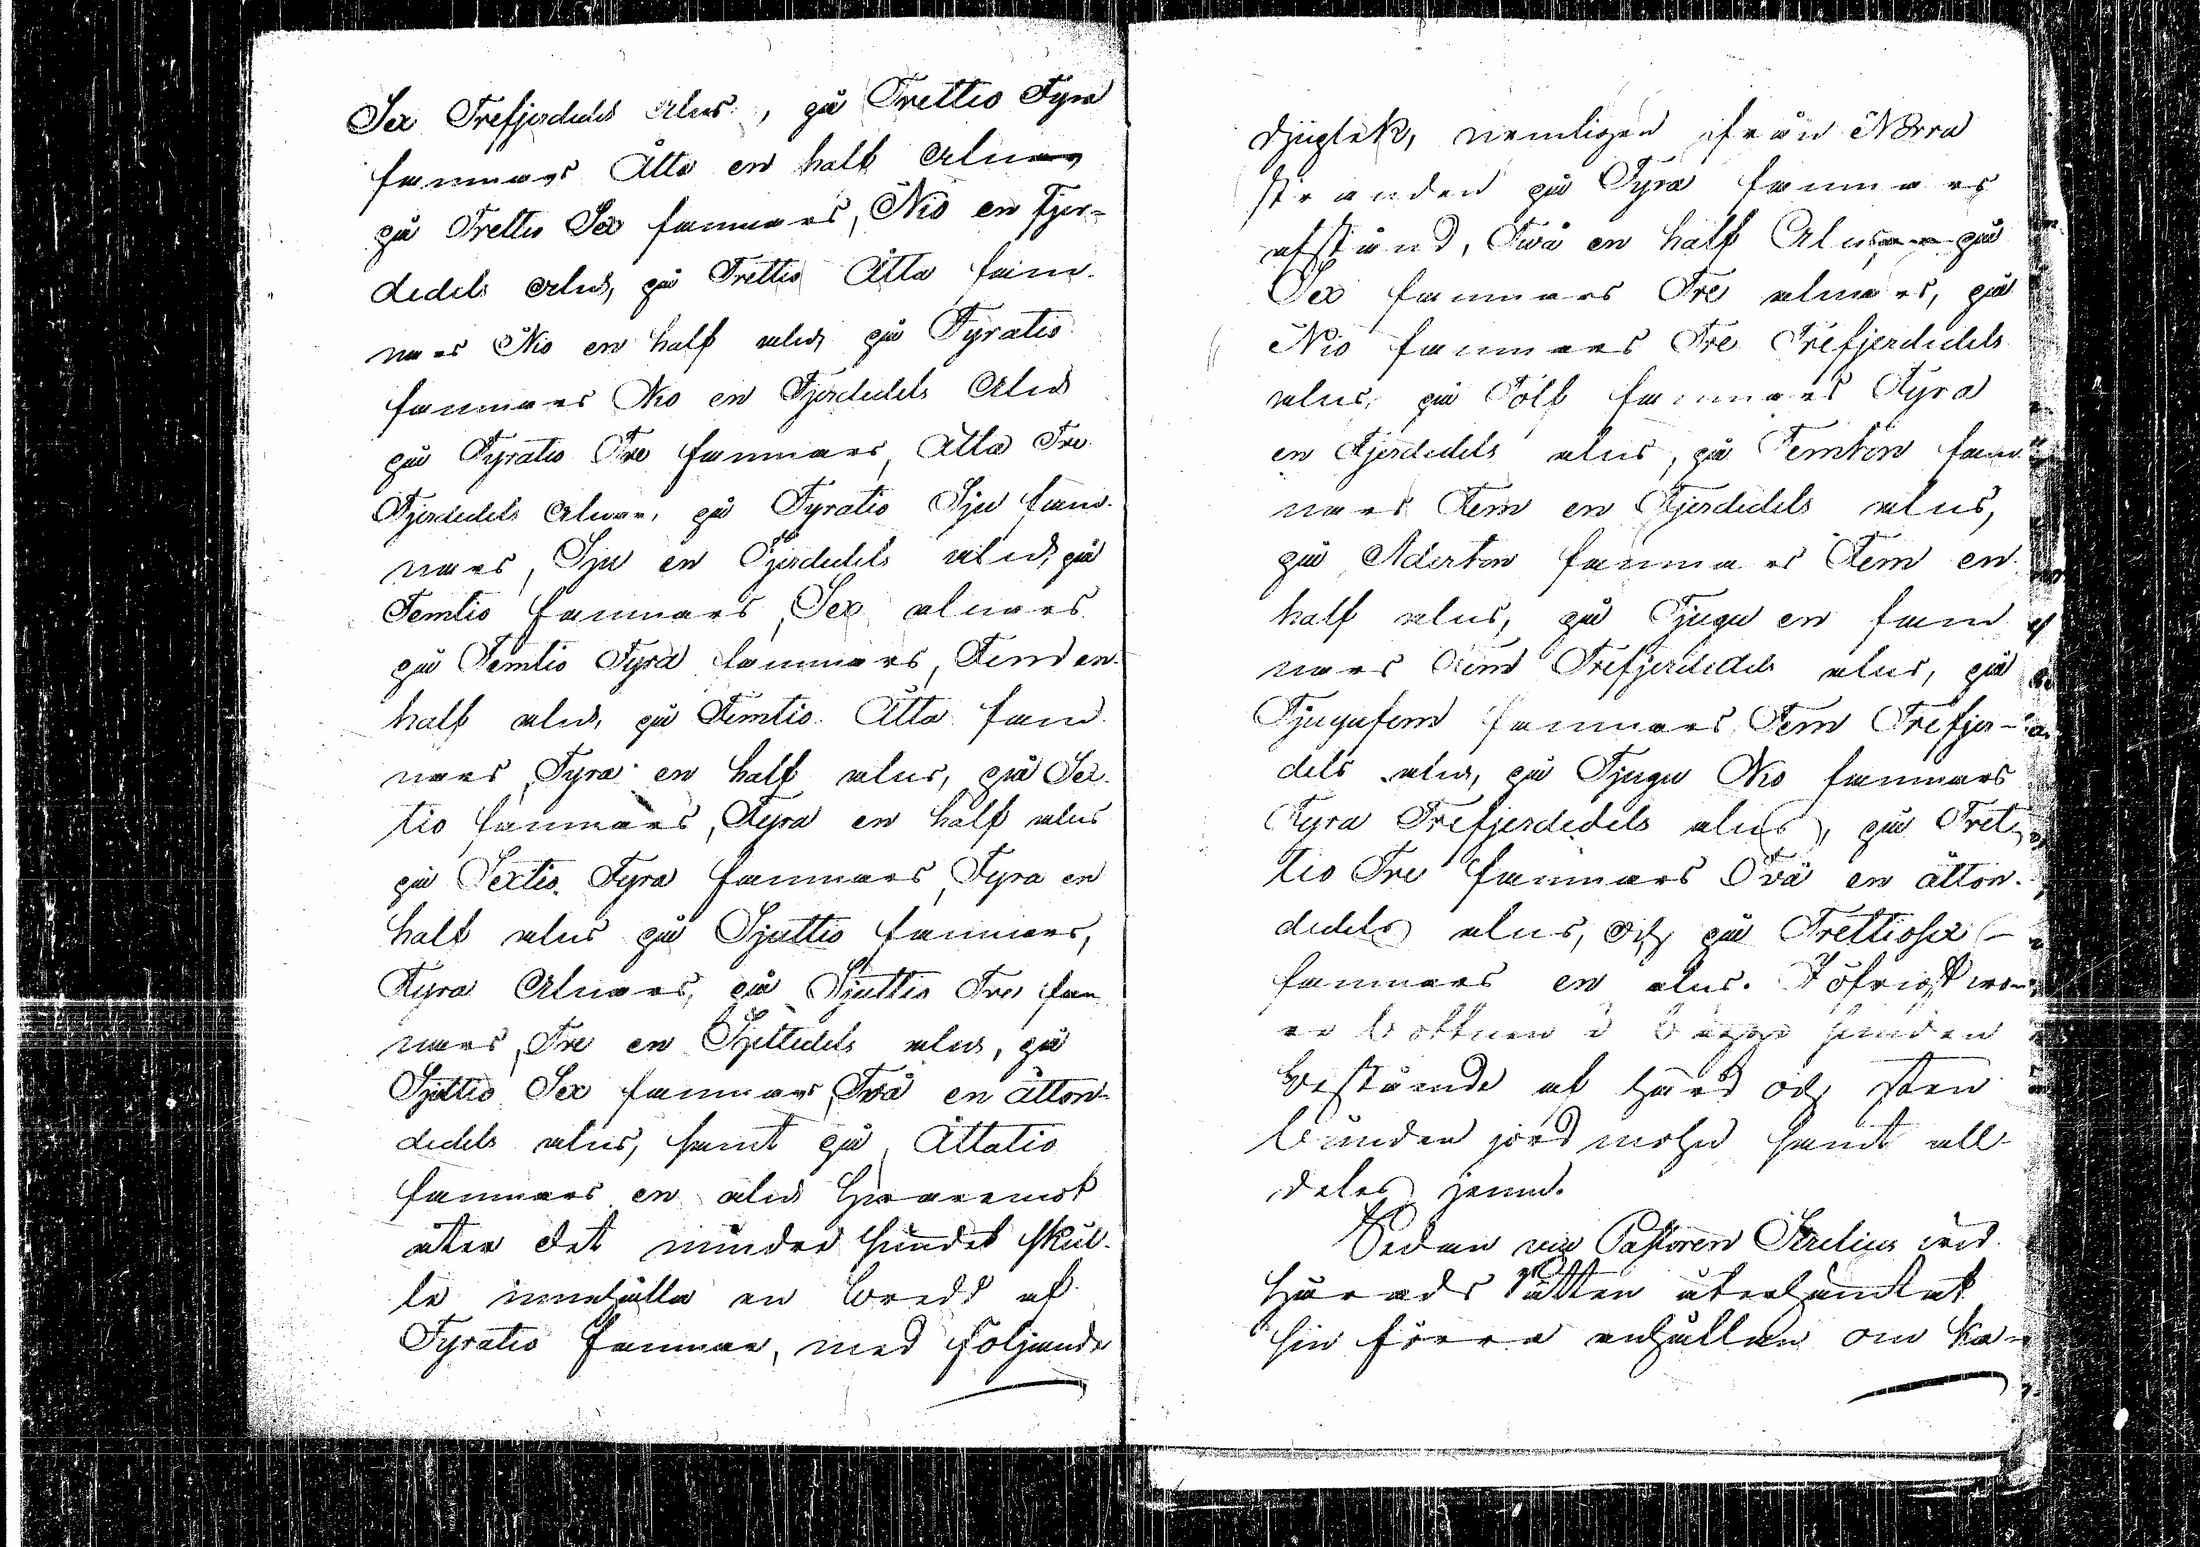 Sex Trefjerdedels aln, på Trettio Fyra
famnars Åtta en half alnars
på Trettio Sex famnars, Nio en Fjer-
dedels aln, på Trettio Åtta fam-
nars Nio en half aln, på Fyratio
famnars Nio en Fjerdedels Aln
på Fyratio Tre famnars, Åtta Tre
Fjerdedels Alnar, på Fyratio Sju fam-
nars, Sju en Fjerdedels aln, på
Femtio famnars, Sex alnars
på Femtio Fyra famnars, Fem en
half aln, på Femtio Åtta fam-
nars, Fyra en half aln, på Sex-
tio famnars, Fyra en half aln
på Sextio Fyra famnars, Fyra en
half aln på Sjuttio famnars,
Fyra Alnars, på Sjuttio Tre fam
nars, Tre en Sjettedels aln, på
Sjuttio Sex famnars, Två en åtton-
dedels aln, samt på Åttatio
famnars en aln hvaremot
åter det mindre sundet skul-
le innehålla en bredd af
Fyratio famnar, med följande
djuplek, nemligen ifrån Norra
stranden på Fyra famnars
afstånd, Två en half Aln på
Sex famnars Tre alnars, på
Nio famnars Tre Trefjerdedels
aln, på Tolf famnars Fyra
en Fjerdedels aln, på Femton fam-
nars Fem en Fjerdedels aln,
på Aderton famnars Fem en
half aln, på Tjugu en fam
nars Fem Trefjerdedels aln, på
Tjugufem famnars Fem Trefjer-
dels aln, på Tjugu Nio famnars
Fyra Trefjerdedels aln, på Tret-
tio Tre famnars Två en åtton-
dedels aln, och på Trettiosex
famnars en aln. I öfrigt wo-
re bottnen i bägge sunden
bestående af hård och sten
bunden jord mohn samt all-
deles jemn.
Sedan nu Pastoren Serelius wid
Härads Rätten återhämtat
sin förra anhållan om ka-